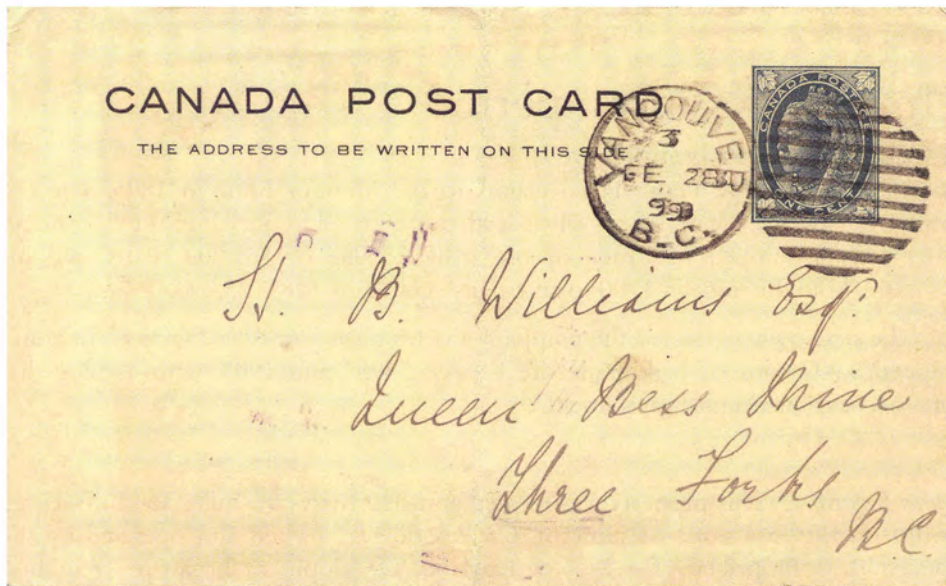 CANADA POST CARD
THE ADDRESS TO BE WRITTEN ON THIS SIDE
VANCOUVE
3
FE 28
99
B.C.
CANADA POSTAGE
ONE CENT
St. B. Williams Esq.
Queen Bess Mine
Three Forks
B.C.